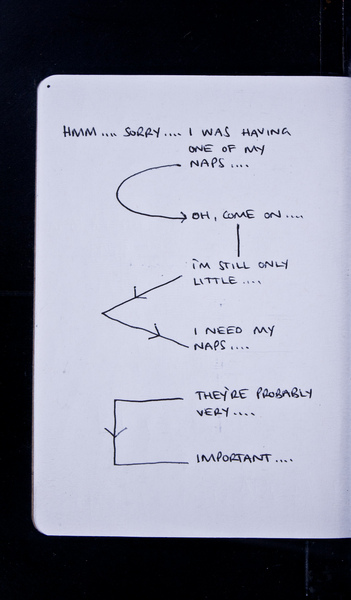 HMM.... SORRY.... I WAS HAVING
ONE OF MY
NAPS....
OH, COME ON....
I'M STILL ONLY
LITTLE....
I NEED MY
NAPS....
THEY'RE PROBABLY
VERY....
IMPORTANT....